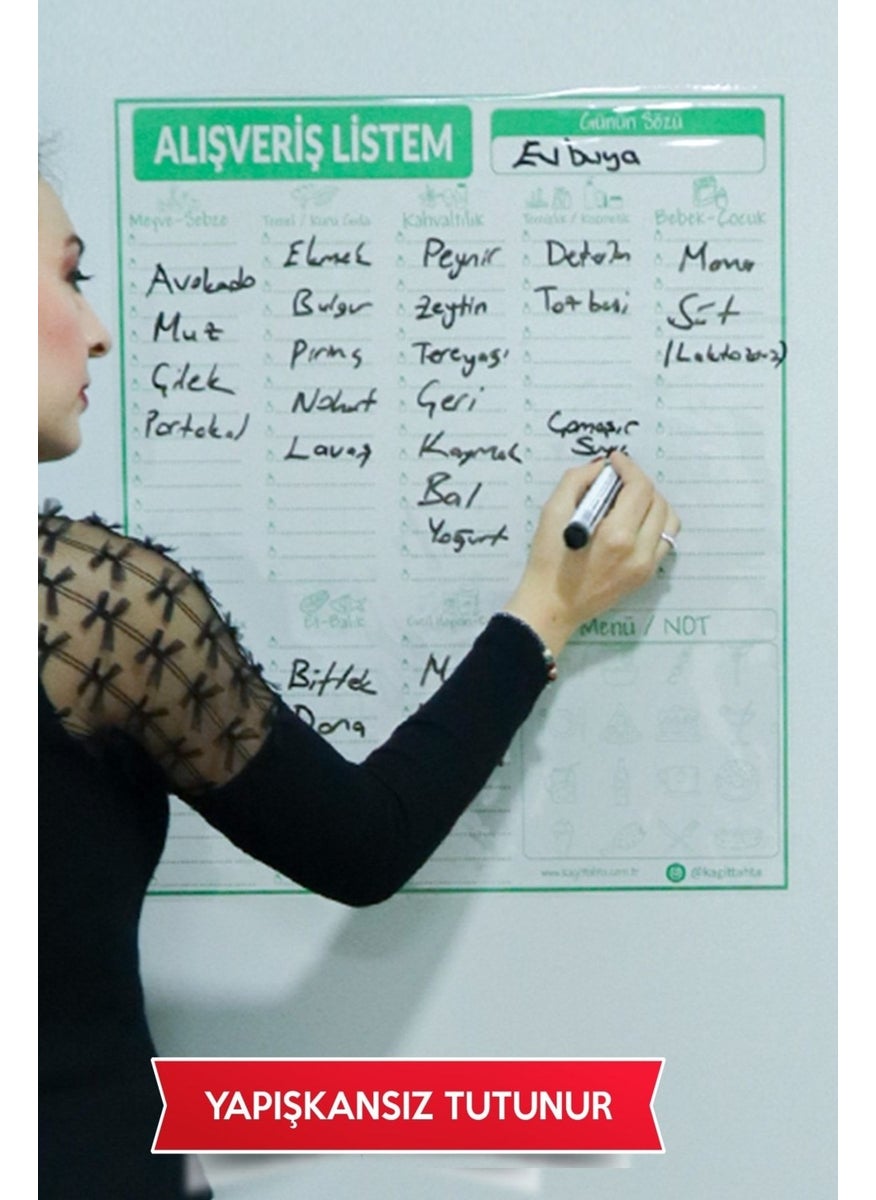 ALIŞVERİŞ LİSTEM
Günün Sözü
Meyve-Sebze
Avokado
Muz
Çilek
Portakal
Temel / Kuru Gıda
Ekmek
Bulgur
Pirinç
Nohut
Lavaş
Kahvaltılık
Peynir
Zeytin
Tereyağı
Kaymak
Bal
Yoğurt
Temizlik / Kozmetik
Toz bezi
Çamaşır
Suyu
Bebek-Çocuk
Mama
Süt
Et-Balık
Biftek
Dana
Menü / NOT
@kagittahta
YAPIŞKANSIZ TUTUNUR